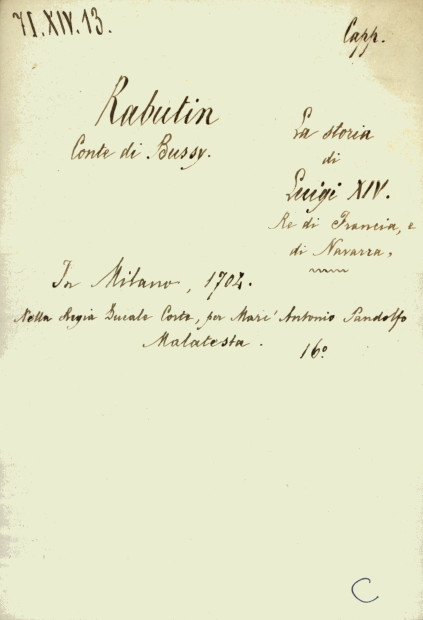 71.XIV.13.
Capp.
Rabutin
Conte di Bussy.
La storia
di
Luigi XIV.
Re di Francia, e
di Navarra,
In Milano, 1702.
Nella Regia Ducale Corte, per Marc' Antonio Pandolfo
Malatesta.
16º
C